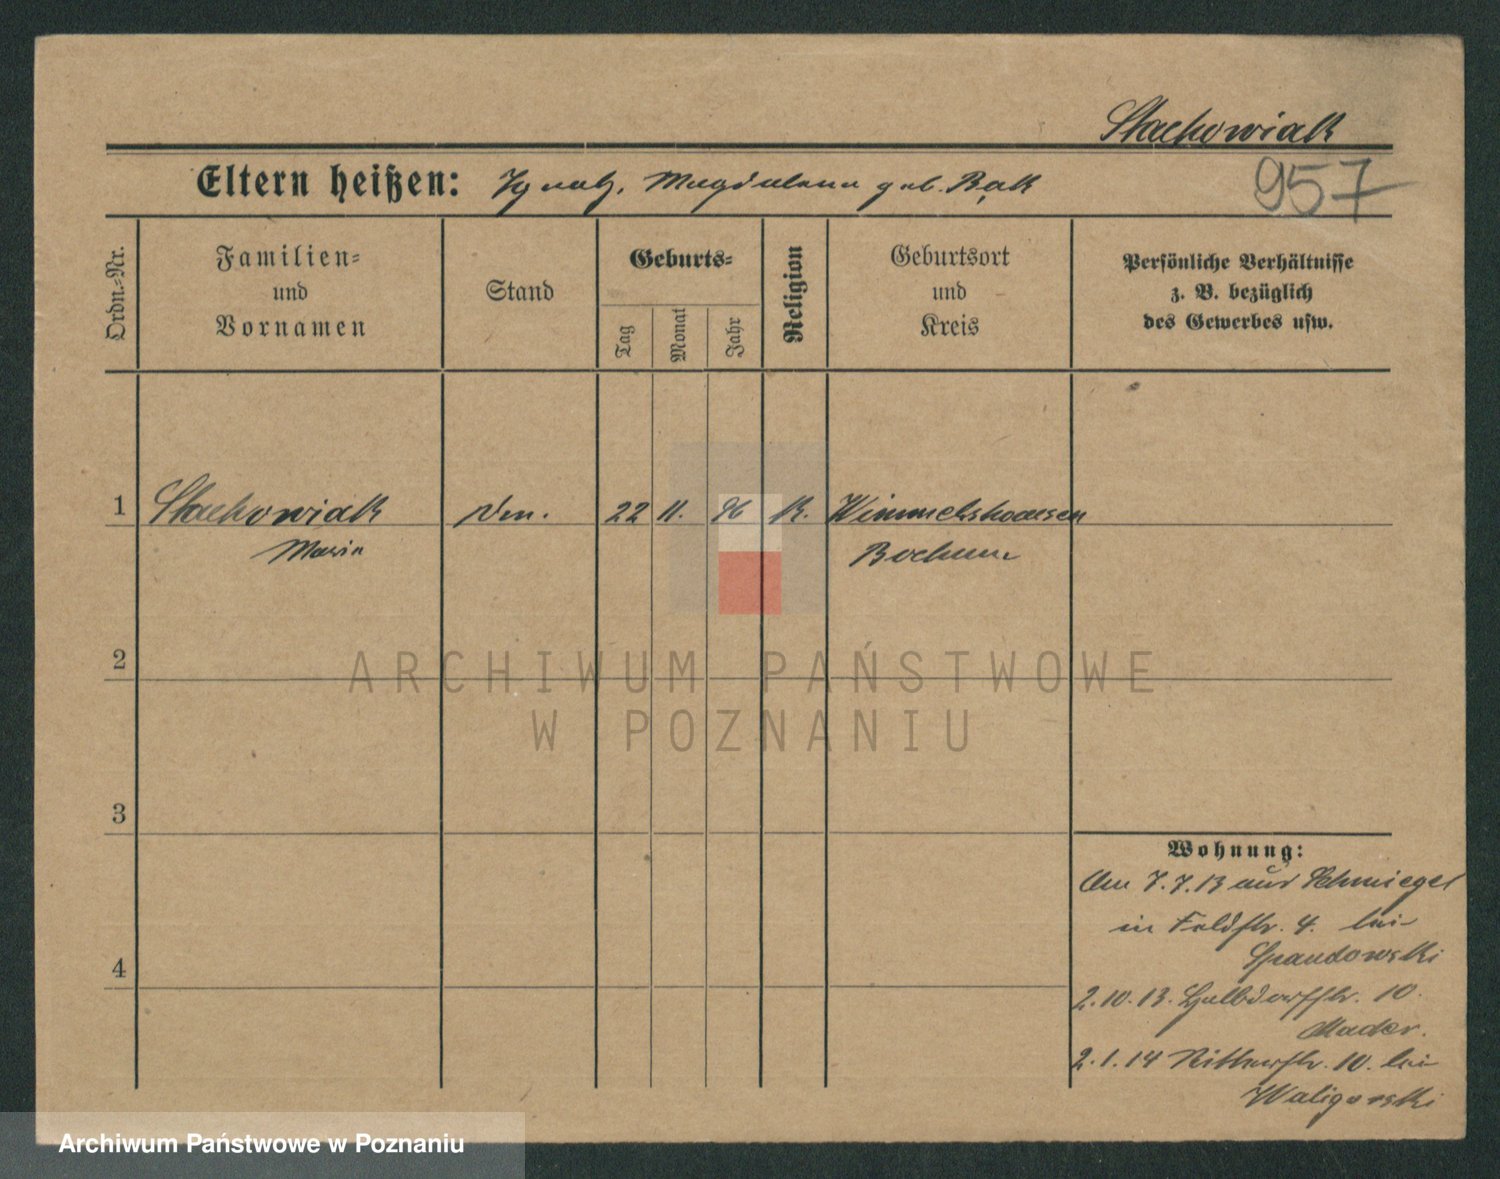 Stachowiak
Eltern heißen: Ignatz, Magdalena geb. Bąk
957
Ordn.=Nr.
Familien=
und
Vornamen
Stand
Geburts=
Tag
Monat
Jahr
Religion
Geburtsort
und
Kreis
Persönliche Verhältnisse
z. B. bezüglich
des Gewerbes usw.
1 Stachowiak 22 11. 96 K. Wimmelshausen
Maria Bochum
2
3
4
Wohnung:
Am 7.7.13 aus Schmiegel
in Feldstr. 4. bei
Spandowski
2.10.13. Halbdorfstr. 10.
Mader.
2.1.14 Ritterstr. 10. bei
Waligorski
ARCHIWUM PAŃSTWOWE
W POZNANIU
Archiwum Państwowe w Poznaniu